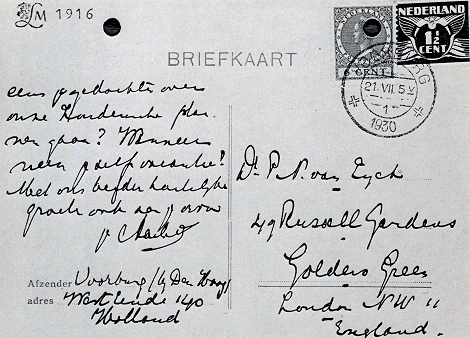 LM 1916
BRIEFKAART
NEDERLAND
1½
CENT
6 CENT
VOORBURG
21.VII.5
1
1930
eens je gedachten over
onze Londensche plan-
nen gaan? Wanneer
neem je zelf vacantie?
Met ons beider hartelijke
groeten ook aan je vrouw
je
Afzender Voorburg (bij Den Haag)
adres Westeinde 140
Holland
Dr. P. N. van Eyck
49 Russell Gardens
Golders Green
London NW 11
England.